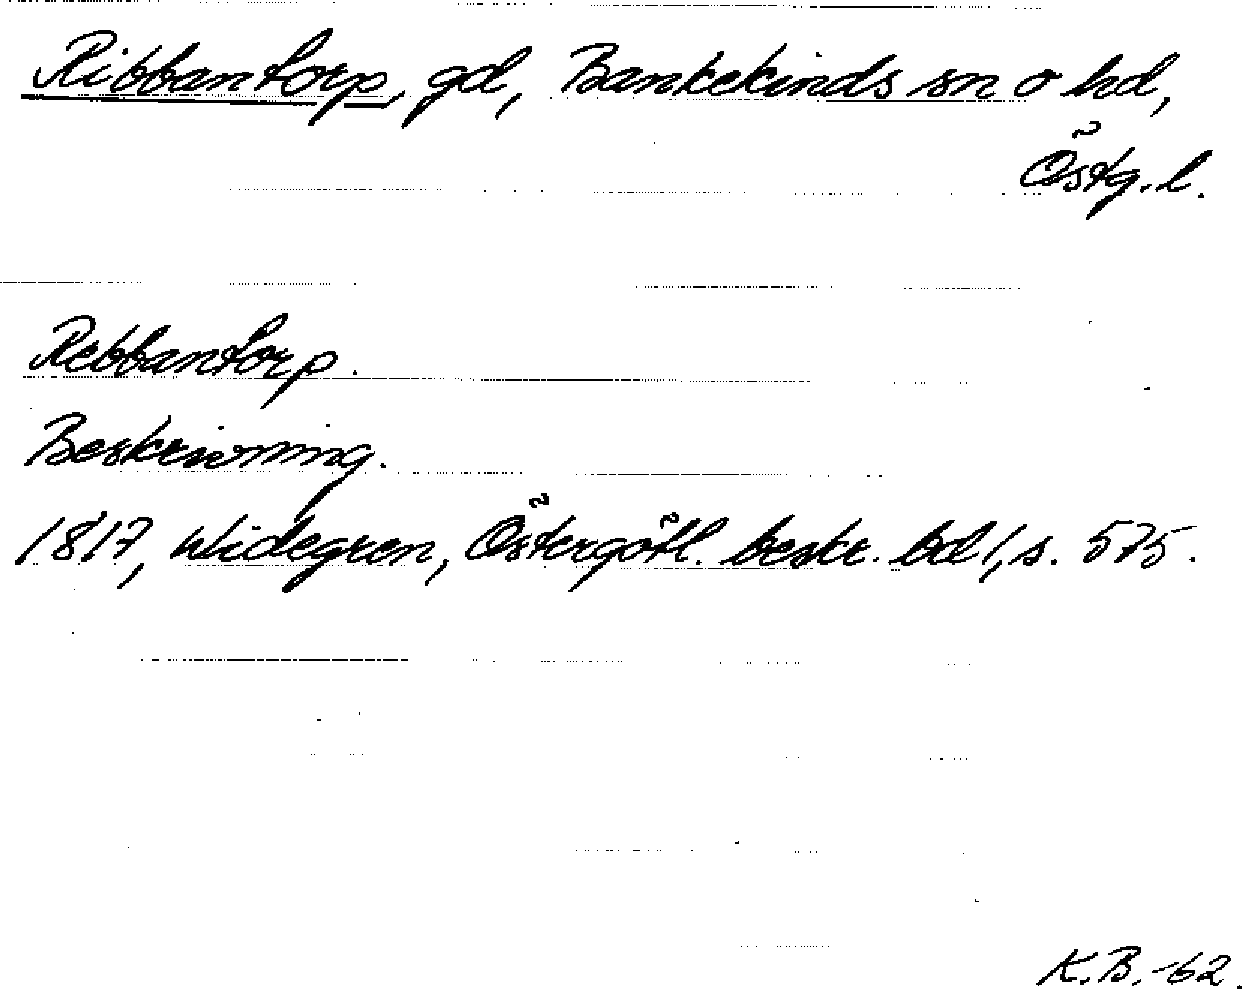 Ribbantorp, gd, Bankekinds sn o hd,
Östg. l.
Rebbantorp.
Beskrivning.
1817, Widegren, Östergötl. beskr. bd 1, s. 575.
K.B. -62.